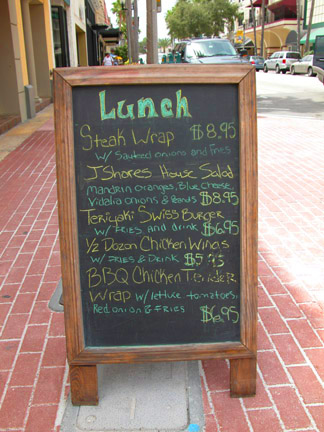 Lunch
Steak Wrap $8.95
w/ Sauteed onions and Fries
J Shores House Salad
Mandrin oranges, Blue cheese,
Vidalia onions & $8.95
Teriyaki Swiss Burger
w/ Fries and drink $6.95
1/2 Dozon Chicken Wings
w/ Fries & Drink
BBQ Chicken Tender
Wrap w/ lettuce tomatoes,
Red onion & fries $6.95